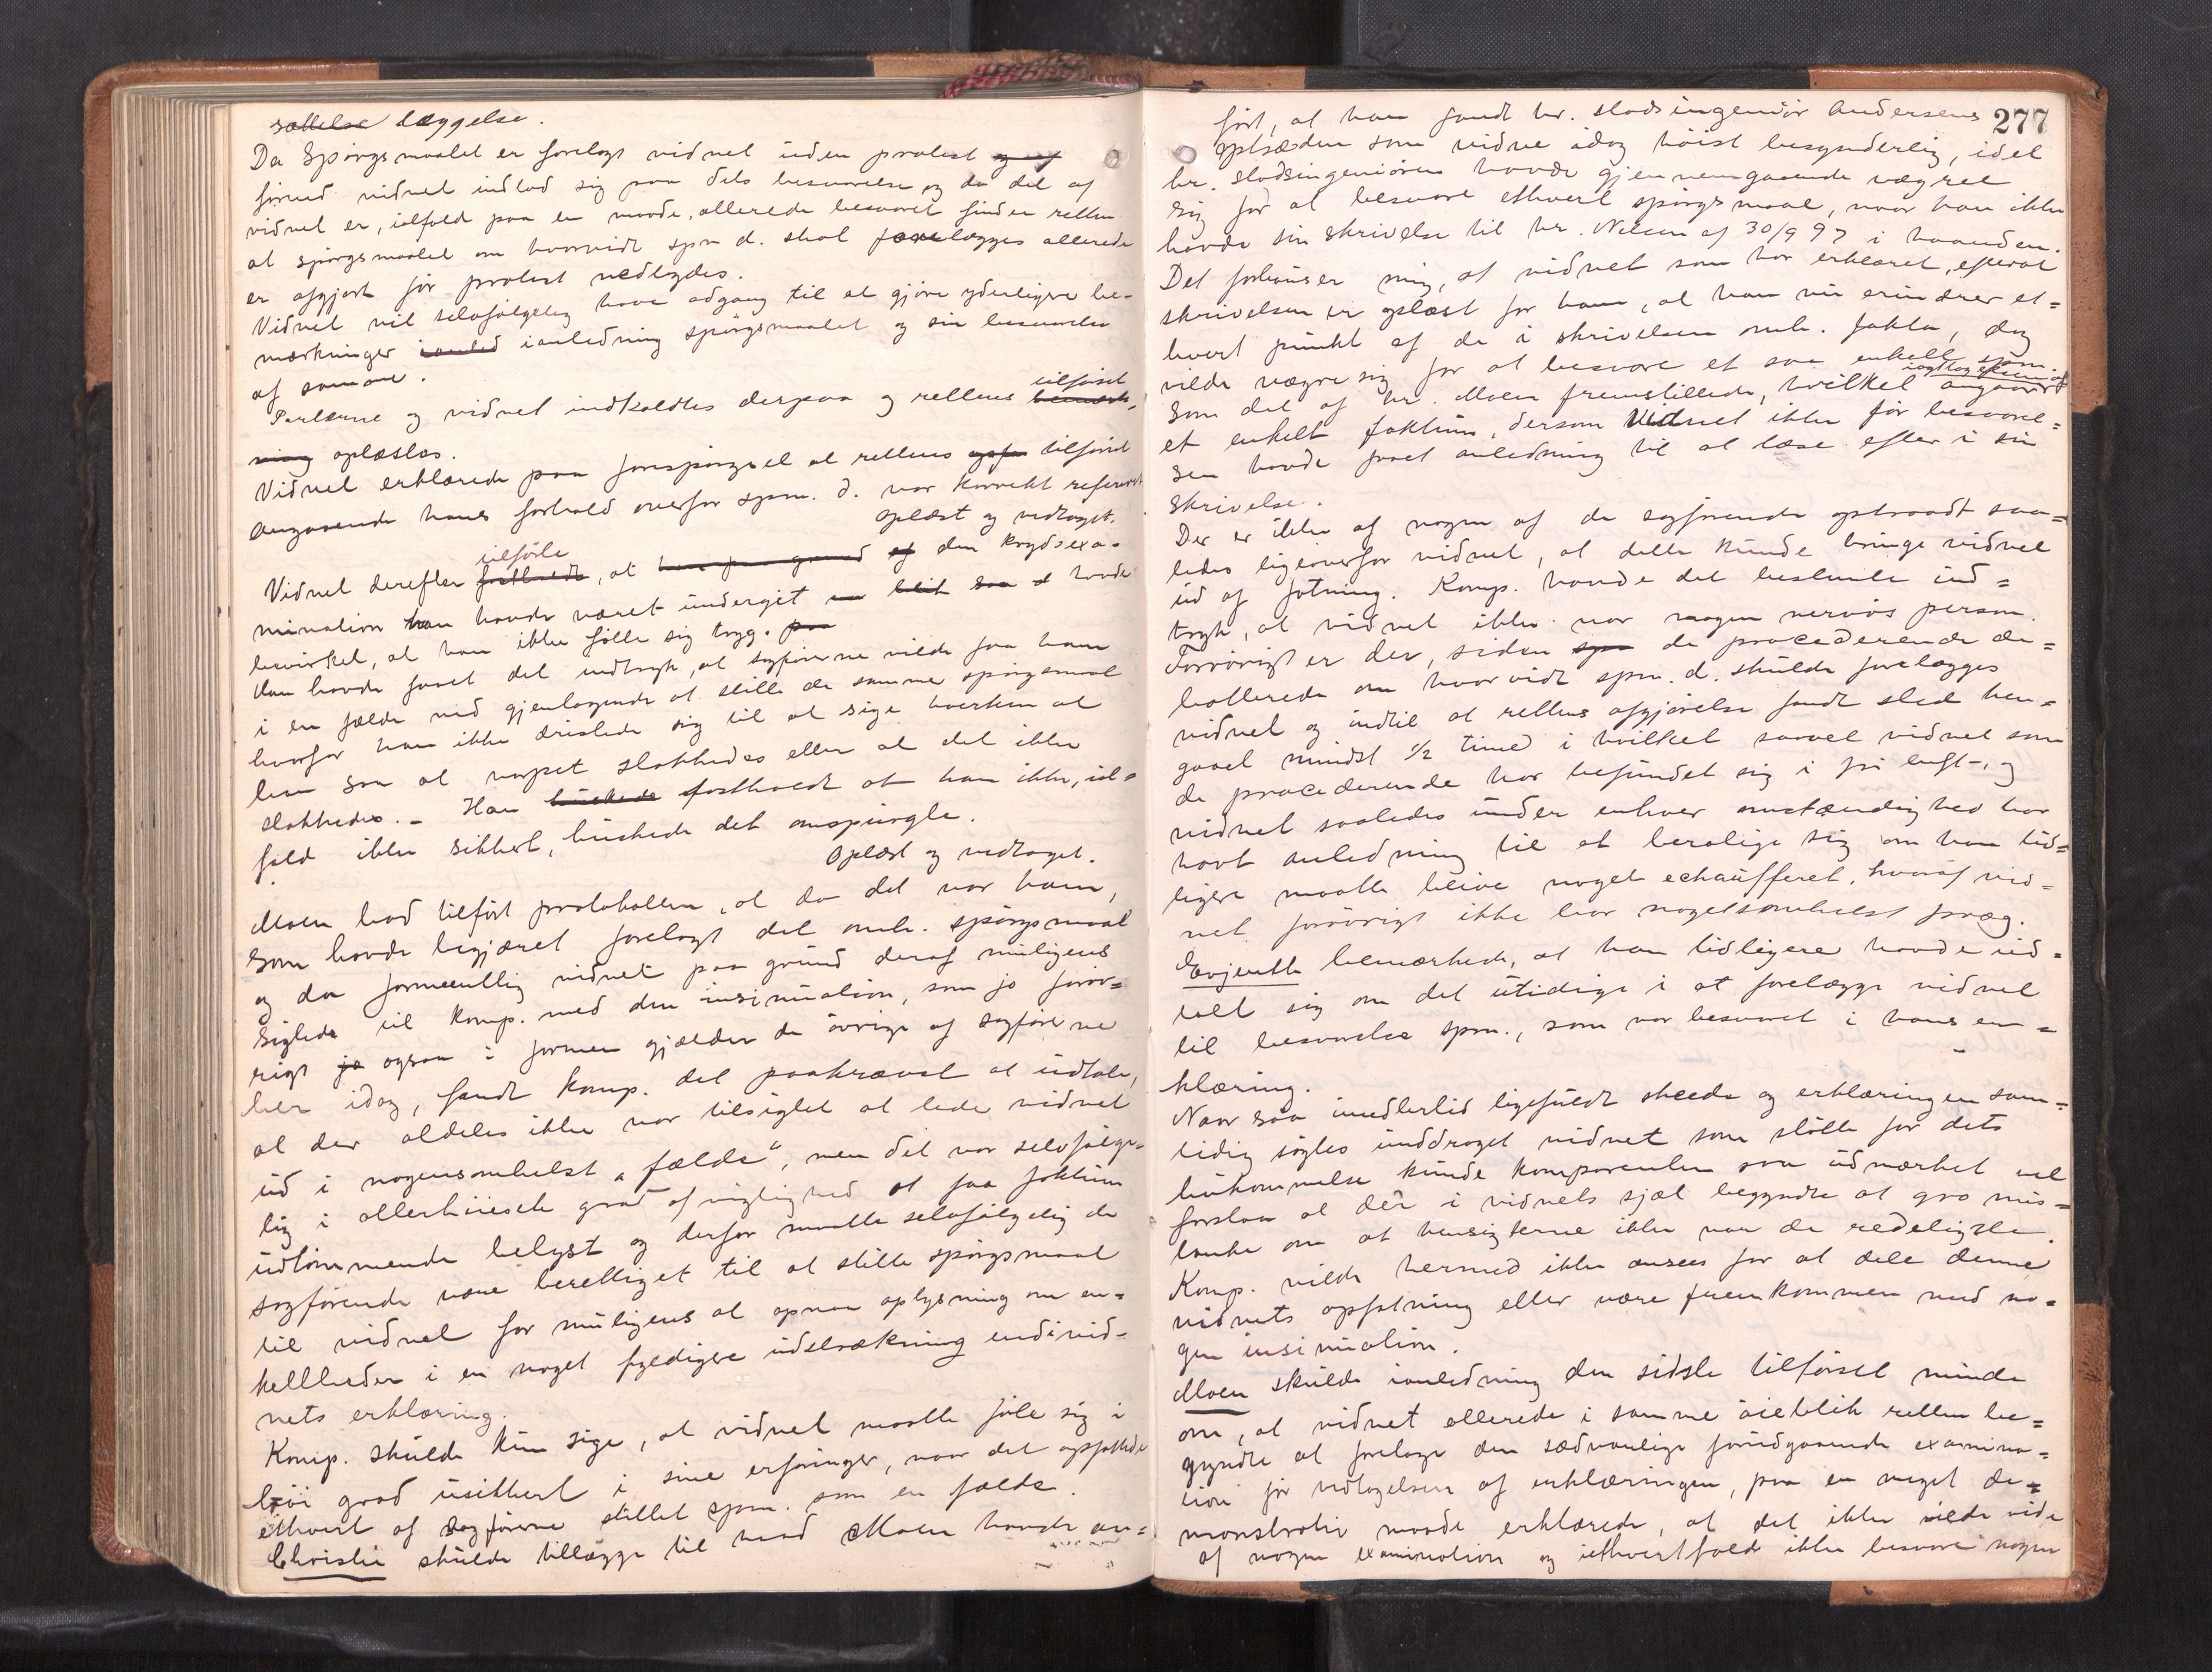 sættelse læggelse.
Da Spörgsmaalet er forelagt vidnet uden protest og af
forinden vidnet indlod sig paa dets besvarelse og da det af
vidnet er, ialfald paa en maade, allerede besvaret finder retten
at spörgsmaalet om hvorvidt spm d. skal forelægges allerede
er afgjort för protest nedlagdes.
Vidnet vil selvfölgelig have adgang til at gjöre yderligere be-
mærkninger ianled ianledning spörgsmaalet og sin besvarelse
af samme.
Parterne og vidnet indkaldtes derpaa og rettens bemærk- tilförsel
ning oplæstes.
Vidnet erklærede paa forespörgsel at rettens tilförsel
angaaende hans forhold overfor spm. d. var korrekt refereret
oplæst og vedtaget.
Vidnet derefter tilförte, at han paa grund af den krydsexa-
mination han havde været undergit havde
bevirket, at han ikke fölte sig tryg. paa
Han havde faaet det indtryk, at sagförerne vilde faa ham
i en fælde ved gjentagende at stille de samme spörgsmaal
hvorfor han ikke dristede sig til at sige hverken at
saa at slakkedes eller at det ikke
slakkedes. - Han huskede fastholdt at han ikke, ial-
fald ikke sikkert, huskede det omspurgte.
Oplæst og vedtaget.
Moen bad tilfört protokollen, at da det var ham,
som havde begjæret forelagt det omh. spörgsmaal
og da formentlig vidnet paa grund deraf muligens
sigtede til komp. med den insinuation, som jo forör-
rigt jo ogsaa i formen gjælder de övrige af sagförerne
her idag, fandt komp. det paakrævet at udtale,
at der aldeles ikke var tilsigtet at lede vidnet
ud i nogensomhelst "fælde", men det var selvfölge-
lig i allerhöieste grad af vigtighed at faa faktum
udtömmende belyst og derfor maatte selvfölgelig de
sagförende være berettiget til at stille spörgsmaal
til vidnet for muligens at opnaa oplysning om en-
keltheder i en noget fyldigere udstrækning end vid-
nets erklæring.
Komp. skulde kun sige, at vidnet maatte föle sig i
höi grad usikkert i sine erfaringer, naar det opfattede
ethvert af sagförerne stillet spm. som en fælde.
Christie skulde tillægge til hvad Moen havde an-
277
fört, at han fandt hr. stadsingeniör Andersens
optræden som vidne idag höist besynderlig, idet
hr. stadsingeniören havde gjennemgaaende vægret
sig for at besvare ethvert spörgsmaal, naar han ikke
havde sin skrivelse til hr. Nelsen af 30/9 97 i haanden.
Det forbauser mig, at vidnet som har erklæret, efterat
skrivelsen er oplæst for ham, at han nu erindrer et-
hvert punkt af de i skrivelsen omh. fakta, dog
vilde vægre sig for at besvare et saa enkelt spm.
som det af hr. Moen fremstillede, hvilket angaar
et enkelt faktum, dersom Vidnet ikke för besvarel-
sen havde faaet anledning til at læse efter i sin
skrivelse.
Der er ikke af nogen af de sagförende optraadt saa-
ledes ligeoverfor vidnet, at dette kunde bringe vidnet
ud af fatning. Komp. havde det bestemte ind-
tryk, at vidnet ikke var nogen nervös person.
Forövrigt er der, siden spm de procederende de-
batterede om hvorvidt spm. d. skulde forelægges
vidnet og indtil at rettens afgjörelse fandt sted hen-
gaaet mindst 1/2 time i hvilket saavel vidnet som
de procederende har befundet sig i fri luft-, og
vidnet saaledes under enhver omstændighed har
havt anledning til at berolige sig om han tid-
ligere maatte blive noget echaufferet, hvoraf vid-
net forövrigt ikke bar nogetsomhelst præg.
Evjenth bemærkede, at han tidligere havde ud-
talt sig om det utidige i at forelægge vidnet
til besvarelse spm., som var besvaret i hans er-
klæring.
Naar saa imidlertid ligefuldt skeede og erklæringen sam-
tidig sögtes unddraget vidnet som stötte for dets
hukommelse kunde komparenten saa udmærket vel
forstaa at der i vidnets sjæl begyndte at gro mis-
tanke om at hensigterne ikke var de redeligste.
Komp. vilde hermed ikke ansees for at dele denne
vidnets opfatning eller være fremkommen med no-
gen insinuation.
Moen skulde ianledning den sidste tilförsel minde
om, at vidnet allerede i samme öieblik retten be-
gyndte at foretage den sædvanlige forudgaaende examina-
tion för vedtagelsen af erklæringen, paa en meget de-
monstrativ maade erklærede, at det ikke vilde vide
af nogen examination og iethvertfald ikke besvare nogen